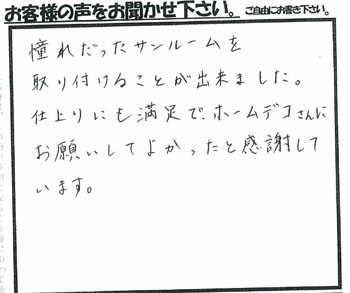 お客様の声をお聞かせ下さい。ご自由にお書き下さい。
憧れだったサンルームを
取り付けることが出来ました。
仕上りにも満足で、ホームデコさんに
お願いしてよかったと感謝して
います。